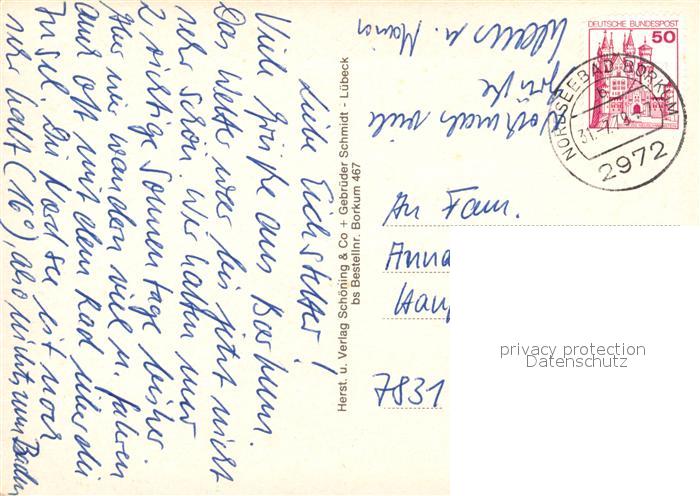 Liebe Eichstetter!
Viele Grüße aus Borkum.
Das Wetter war bis jetzt nicht
sehr schön. Wir hatten nur
2 richtige Sonnentage bisher
Aber wir wandern viel u. fahren
auch oft mit dem Rad über die
Insel. Die Nordsee ist noch
sehr kalt (16°), also nichts zum Baden
Nochmals viele
Grüße
Klaus u. Maria
Herst. u. Verlag Schöning & Co + Gebrüder Schmidt - Lübeck
bs Bestellnr. Borkum 467
DEUTSCHE BUNDESPOST
50
NORDSEEBAD BORKUM
31.-7.79
2972
An Fam.
Anna
Hau
7831
privacy protection
Datenschutz